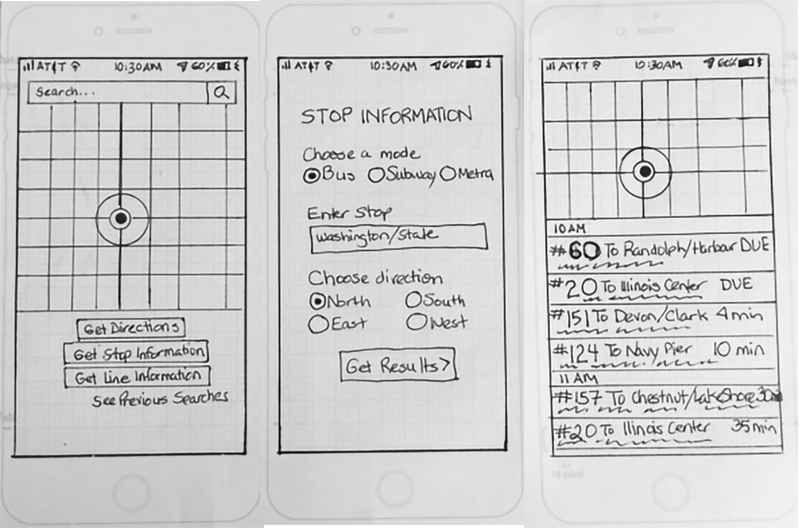 AT&T 10:30AM 60%
Search...
Get Directions
Get Stop Information
Get Line Information
See Previous Searches
AT&T 10:30AM 60%
STOP INFORMATION
Choose a mode
Bus Subway Metra
Enter Stop
Washington/State
Choose direction
North South
East West
Get Results>
AT&T 10:30AM 60%
10AM
#60 To Randolph/Harbour DUE
#20 To Illinois Center DUE
#151 To Devon/Clark 4min
#124 To Navy Pier 10 min
11AM
#157 To Chestnut/LakeShore
#20 To Illinois Center 35min